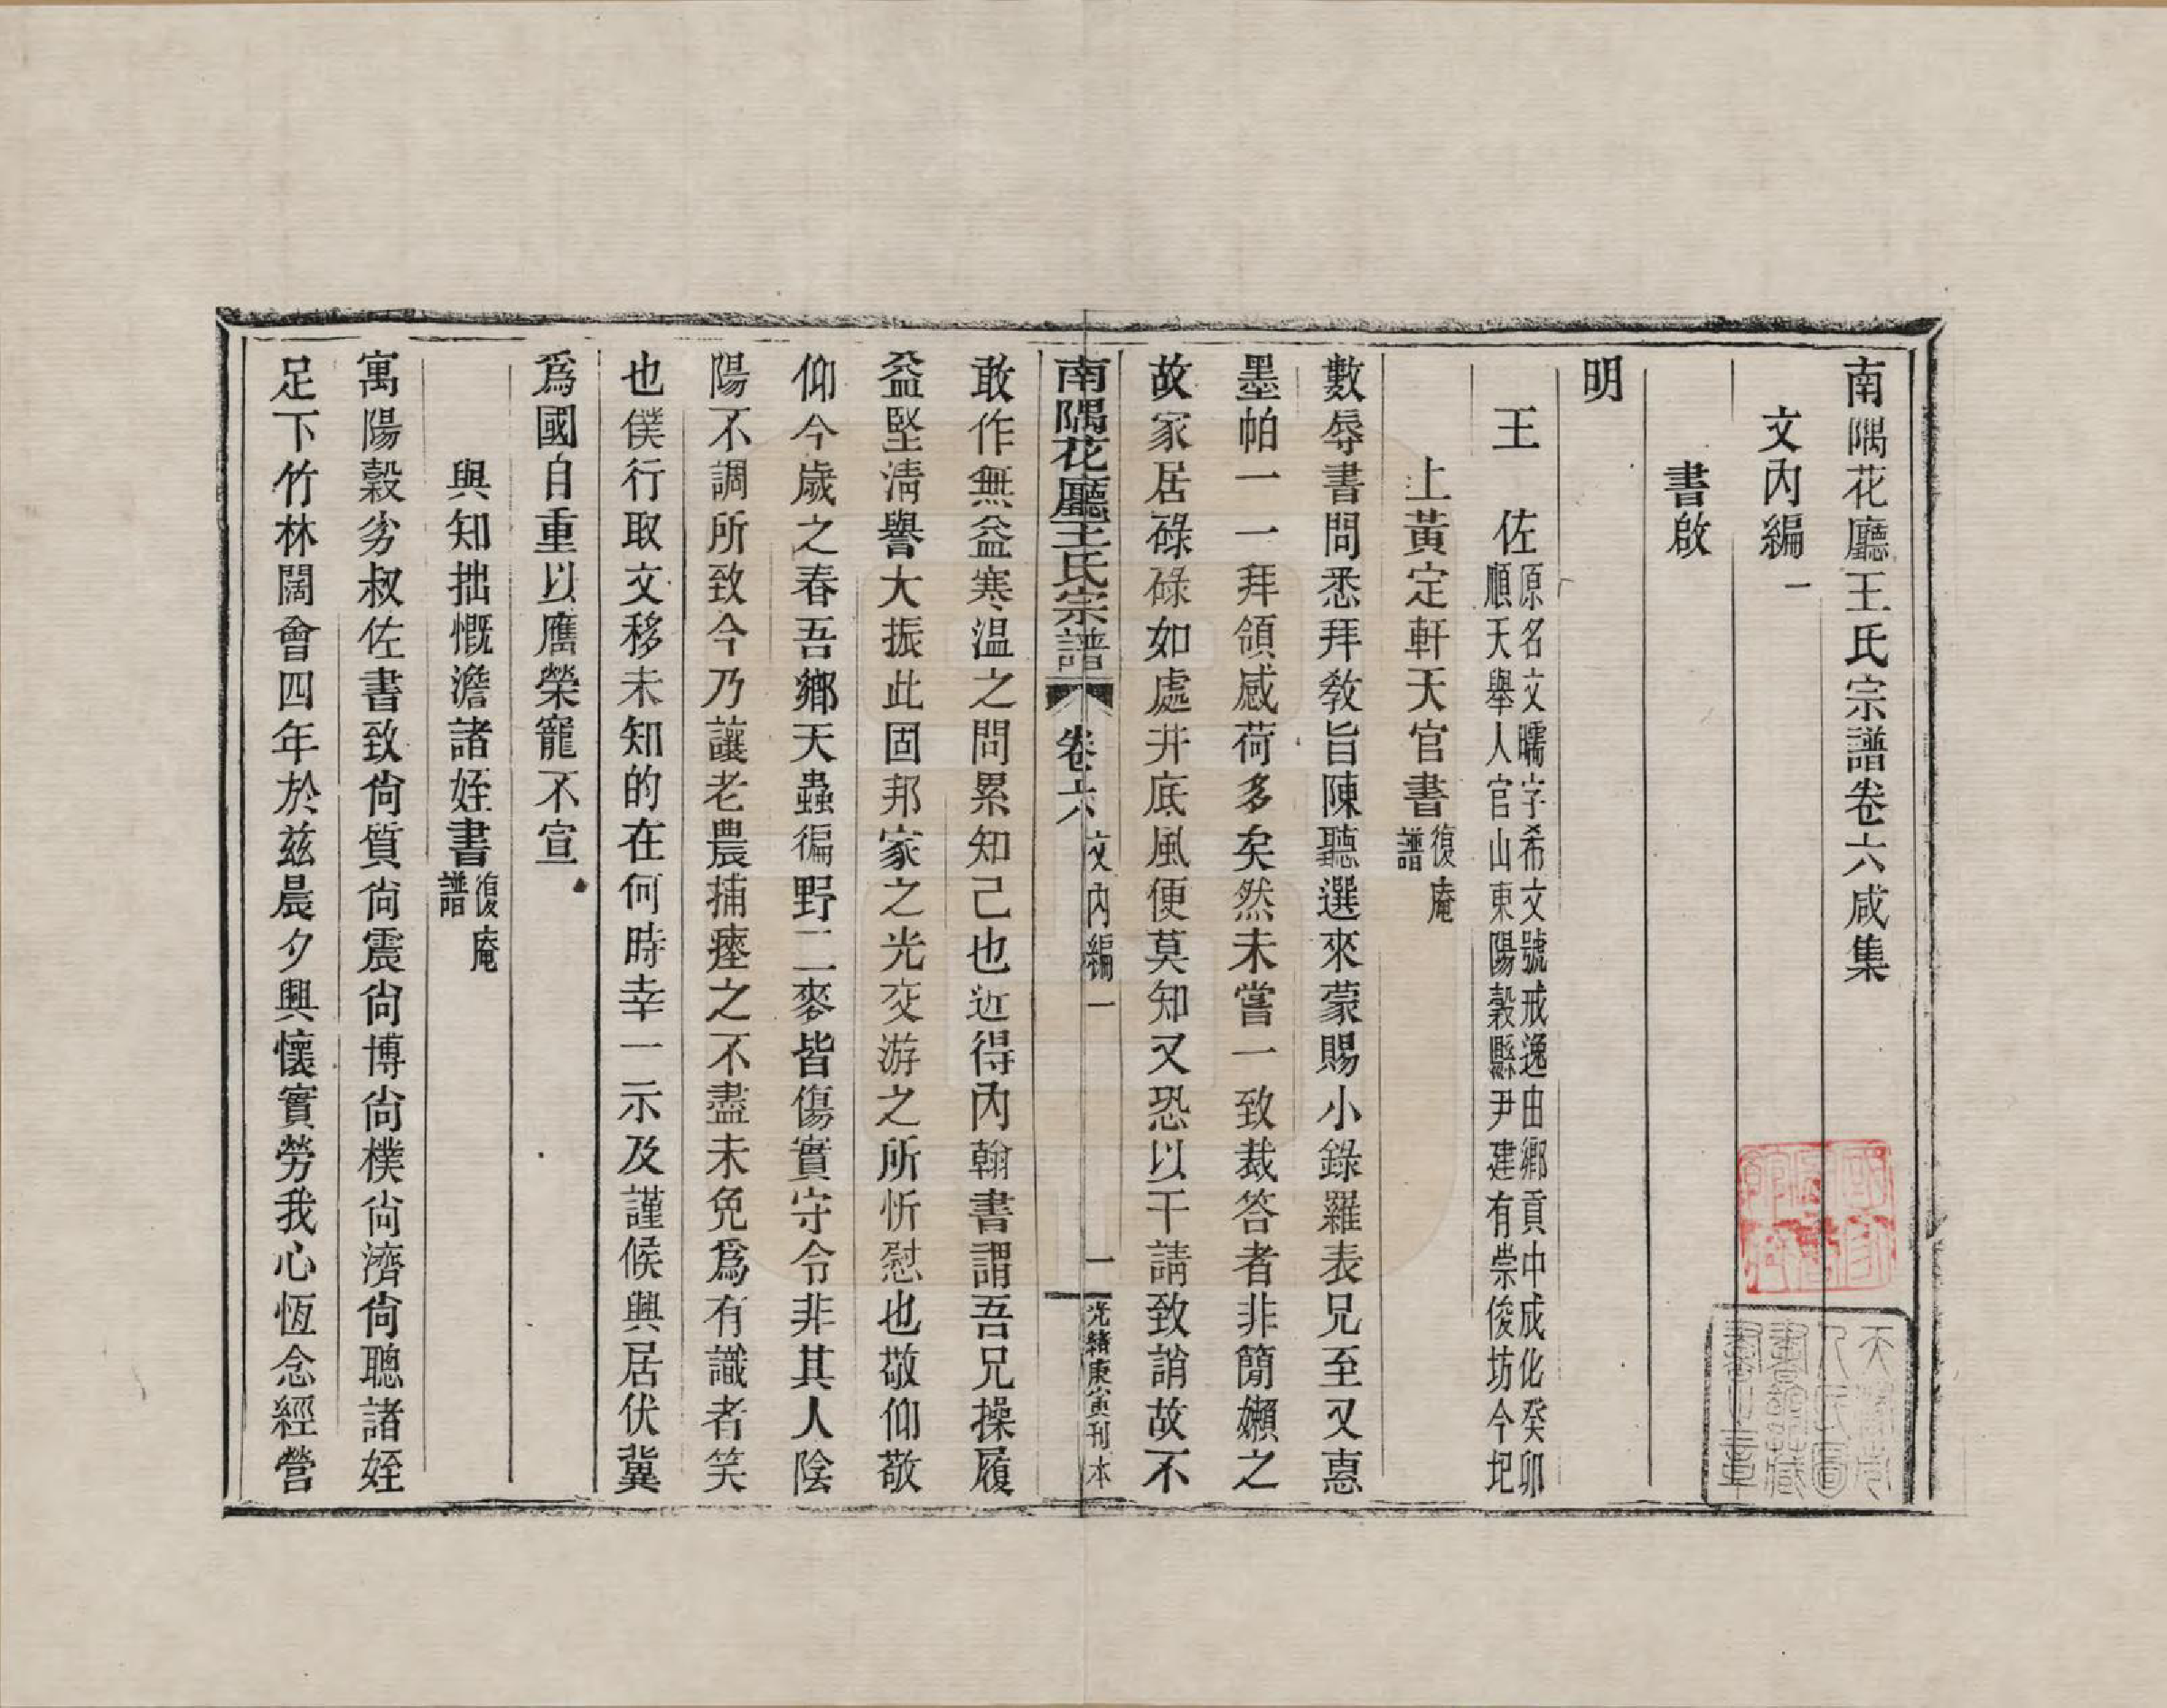 南隅花廳王氏宗譜卷六咸集
文內編一
書啟
明
王　佐原名文曘字希文號戒逸由鄉貢中成化癸卯
順天舉人官山東陽穀縣尹建有崇俊坊今圯
上黃定軒天官書復庵
譜
數辱書問悉拜敎旨陳聽選來蒙賜小錄羅表兄至又惪
墨帕一一拜領感荷多矣然未嘗一致裁答者非簡嬾之
故家居碌碌如處井底風便莫知又恐以干請致誚故不
南隅花廳王氏宗譜 卷六 文內編一 一 光緒庚寅刊本
敢作無益寒温之問累知己也近得內翰書謂吾兄操履
益堅淸譽大振此固邦家之光交游之所忻慰也敬仰敬
仰今歲之春吾鄉天蟲徧野二麥皆傷實守令非其人陰
陽不調所致今乃讓老農捕瘞之不盡未免爲有識者笑
也僕行取文移未知的在何時幸一示及謹候興居伏冀
爲國自重以膺榮寵不宣
與知拙慨澹諸姪書復庵
譜
寓陽穀劣叔佐書致尙質尙震尙博尙樸尙濟尙聰諸姪
足下竹林闊會四年於茲晨夕興懷實勞我心恆念經營